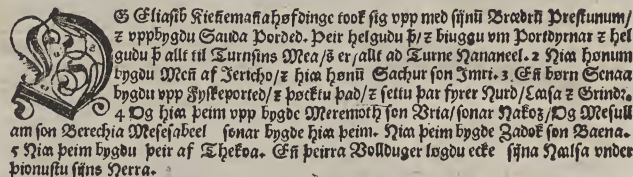 OG Eliasib Kiennemañahøfdinge took sig vpp med sijnū Brœdrū Prestunum/
ꝛ vppbygdu Sauda Porded. Þeir helgudu þ/ꝛ biuggu vm Portdyrnar ꝛ hel
gudu þ allt til Turnsins Mea/þ er/allt ad Turne Hananeel. 2 Hia hønum
bygdu Meñ af Jericho/ꝛ hia hønū Sachur son Imri. 3. Eñ børn Senaa
bygdu vpp Fyskeported/ꝛ þøcktu þad/ꝛ settu þar fyrer Hurd/Lœsa ꝛ Grindr.
4 Og hia þeim vpp bygde Meremoth son Vria/sonar Hakoz/Og Mesull
am son Berechia Mesesabeel sonar bygde hia þeim. Hia þeim bygde Zadok son Baena.
5 Hia þeim bygdu þeir af Thekoa. Eñ þeirra Vollduger løgdu ecke sijna Halsa vnder
þionustu sijns Herra.